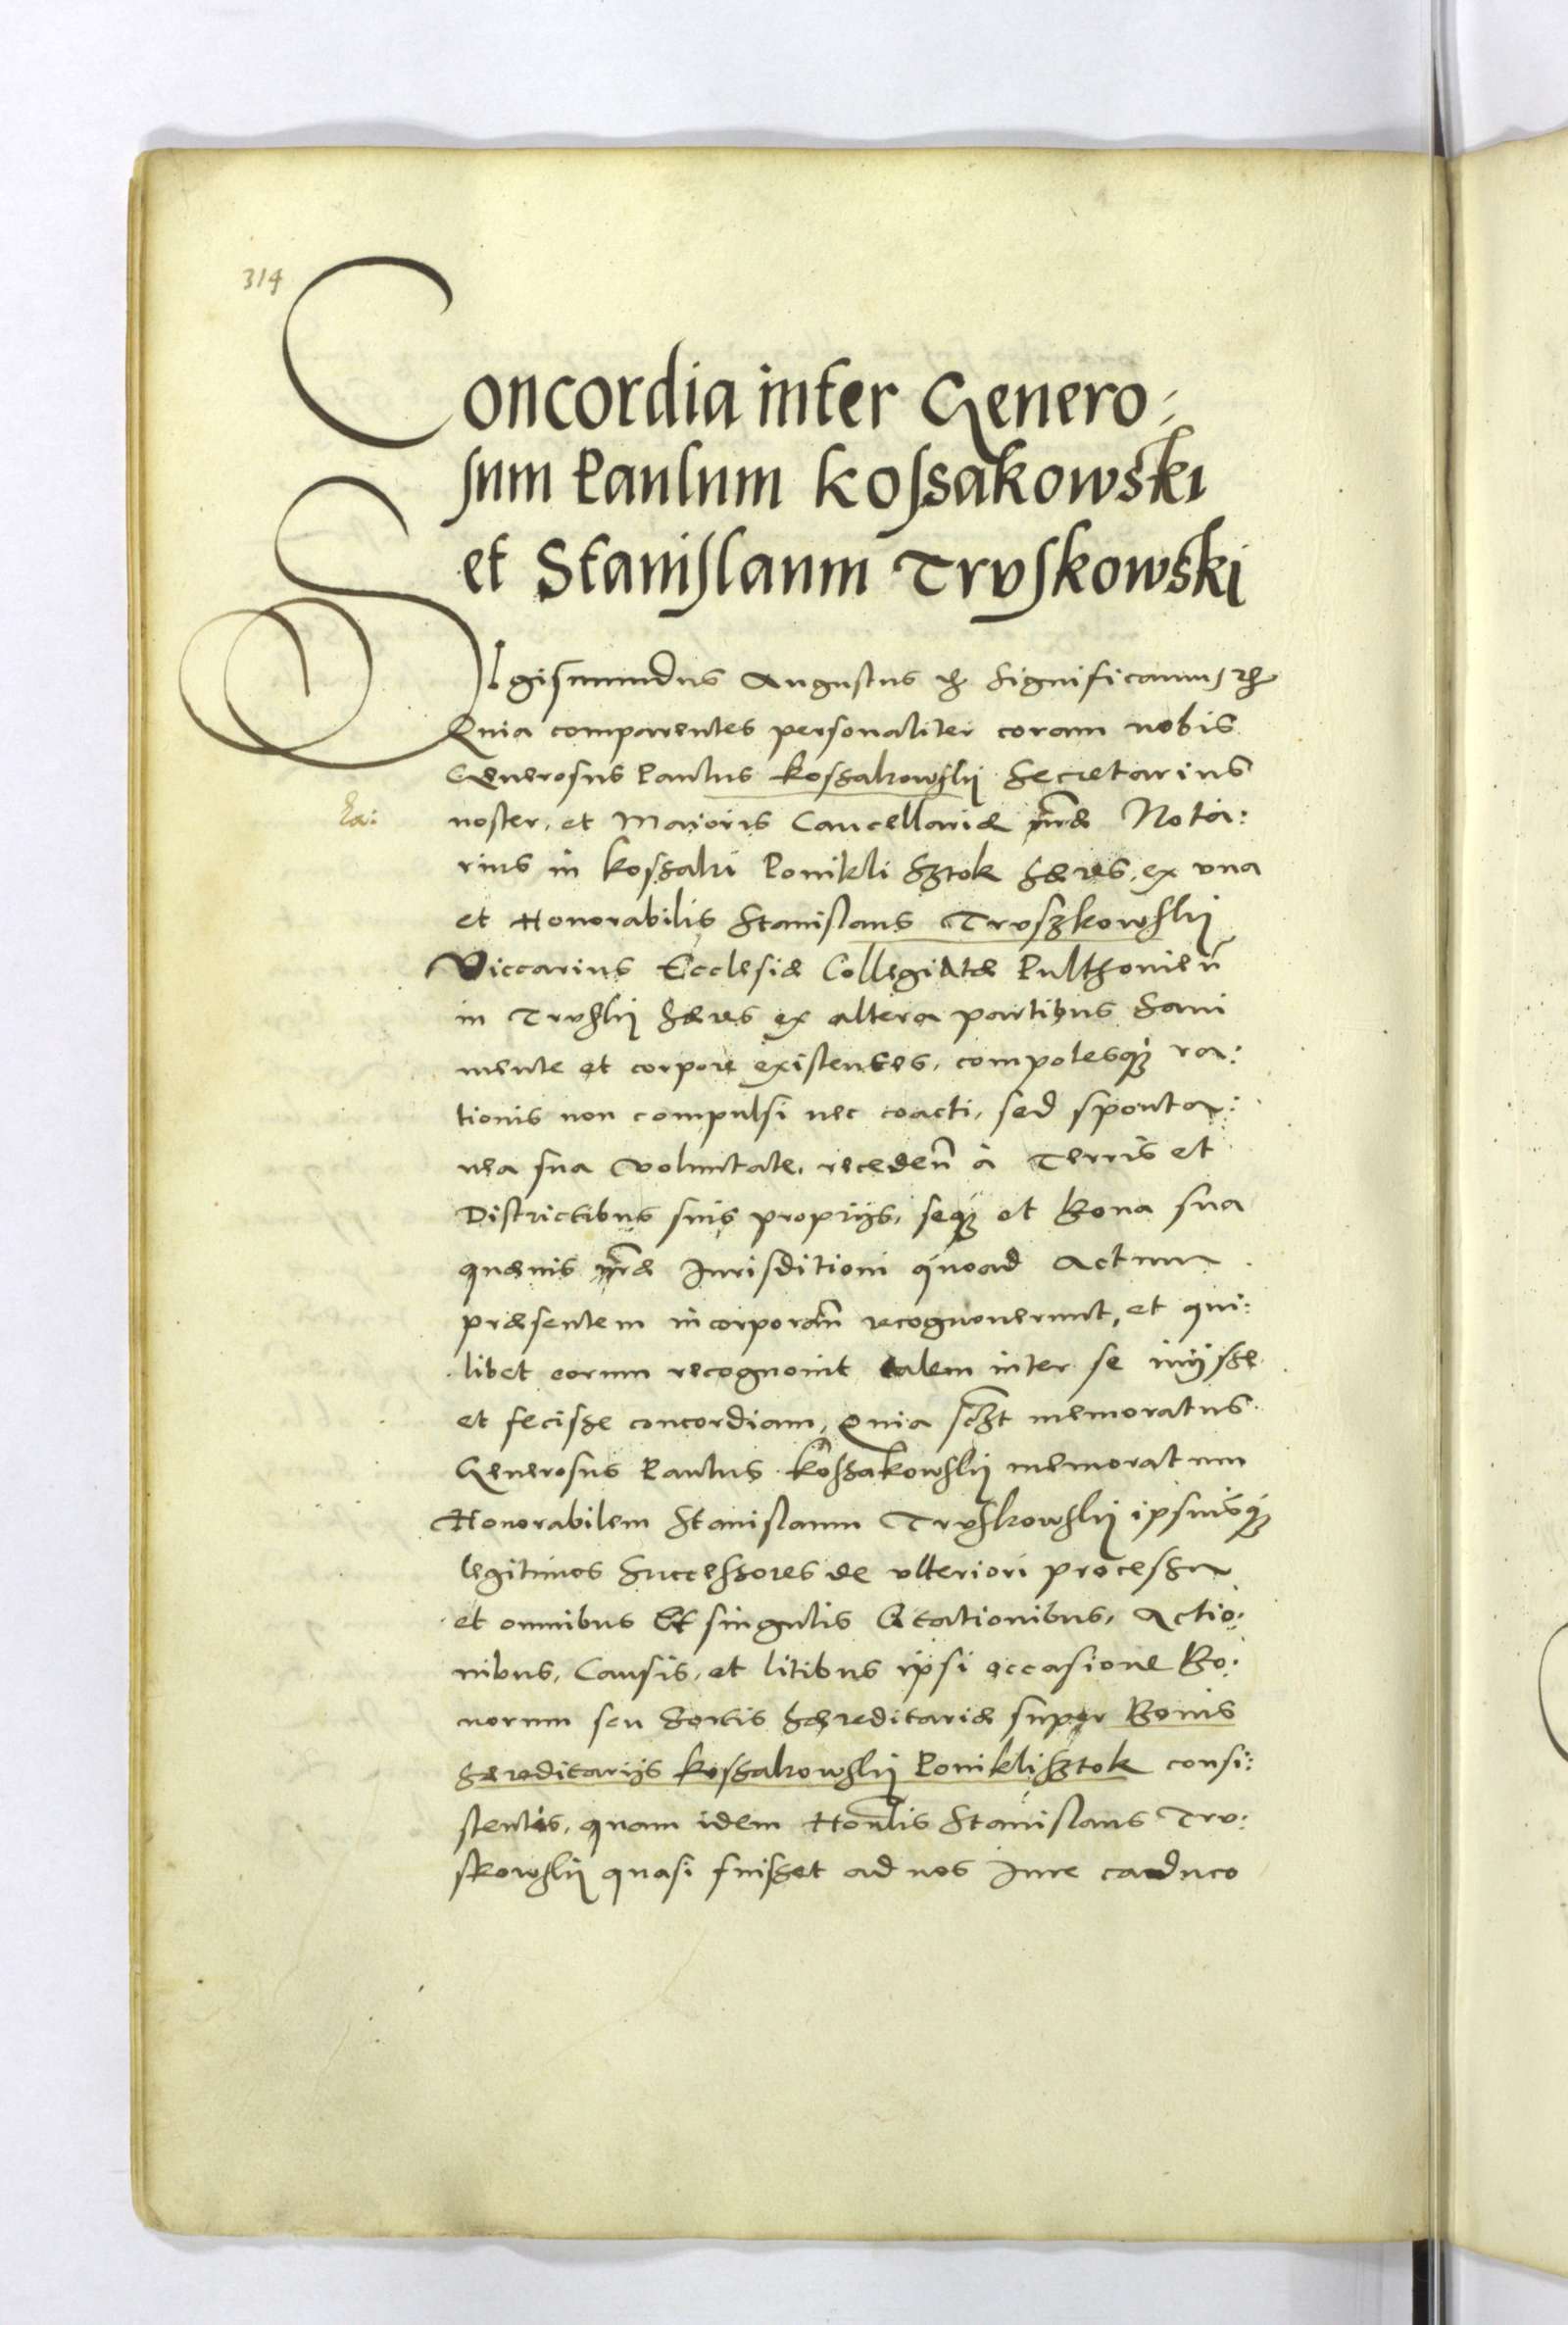 314
Concordia inter Genero=
sum Paulum Kossakowski
et Stanislaum Truskowski
SIgismundus Augustus etc Significamus etc
Quia comparentes personaliter coram nobis
Generosus Paulus Kossakowskij Secretarius
noster, et Maioris Cancellariæ nr̃æ Nota:
rius in Kossaki Ponikli Sztok hæres, ex una
et Honorabilis Stanislaus Truszkowskij
Viccarius Ecclesiæ Collegiatæ Pulthovień
in Truskij hæres ex altera partibus Sani
mente et corpore existentes, compotesq́ʒ ra:
tionis non compulsi nec coacti, sed sponta:
nea sua voluntate, recedeñ à Terris et
Districtibus suis proprijs, seq́ʒ et Bona sua
quævis nr̃æ Jurisditioni quoad Actum
præsentem incorporañ recognoverunt, et qui:
libet eorum recognovit talem inter se inijsse
et fecisse concordiam, Quia sczt memoratus
Generosus Paulus Kossakowskij memoratum
Honorabilem Stanislaum Truskowskij ipsiusq́ʒ
legitimos Successores de ulteriori processu
et omnibus Et singulis Citationibus, Actio:
nibus, Causis, et litibus ipsi occasione Bo:
norum seu Sortis hæreditariæ super Bonis
hæreditarijs Kossakowskij Ponikli Sztok consi:
stentis, quam idem Honĩlis Stanislaus Tru:
skowskij quasi fuisset ad nos Jure caduco